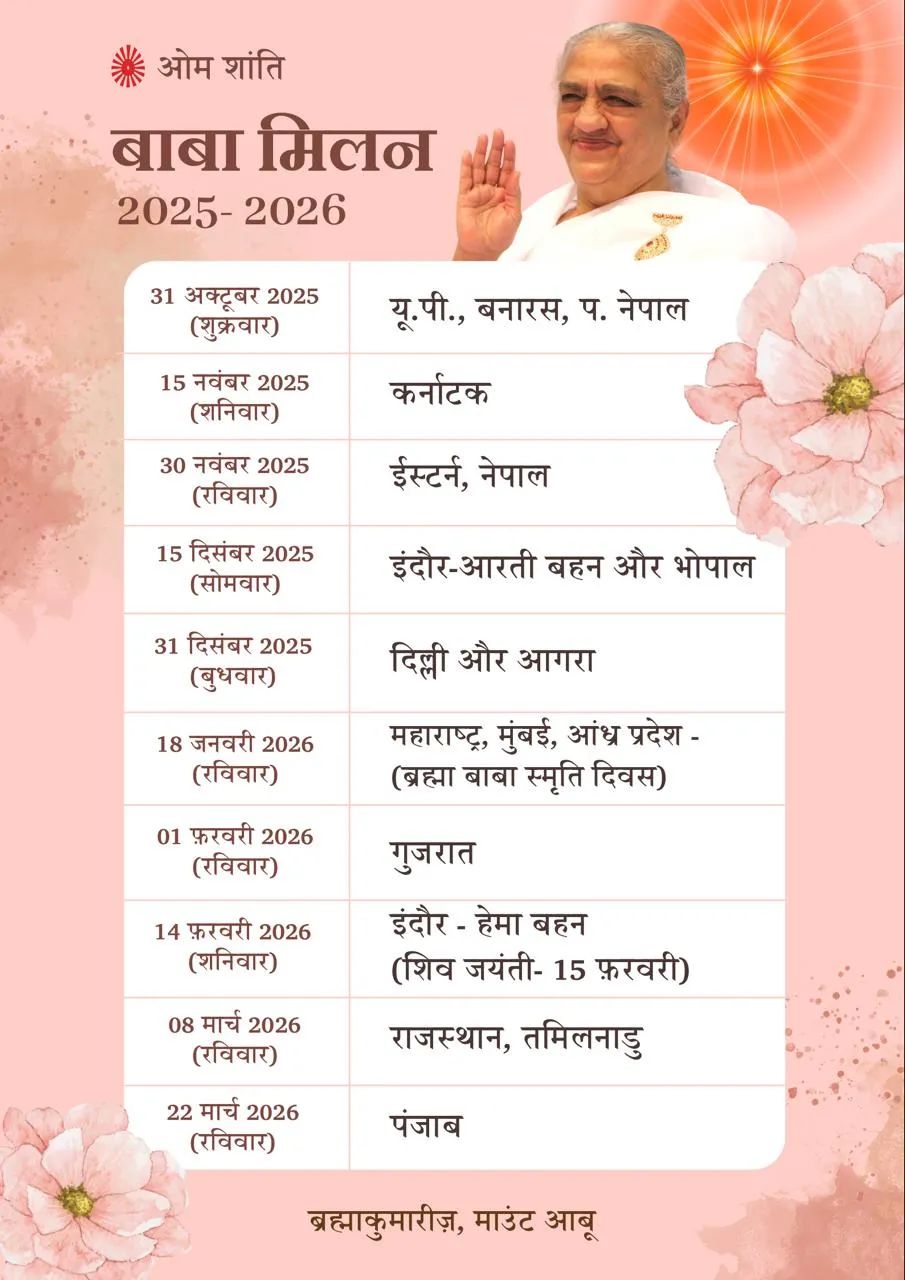 ओम शांति
बाबा मिलन
2025- 2026
31 अक्टूबर 2025
(शुक्रवार)
यू.पी., बनारस, प. नेपाल
15 नवंबर 2025
(शनिवार)
कर्नाटक
30 नवंबर 2025
(रविवार)
ईस्टर्न, नेपाल
15 दिसंबर 2025
(सोमवार)
इंदौर-आरती बहन और भोपाल
31 दिसंबर 2025
(बुधवार)
दिल्ली और आगरा
18 जनवरी 2026
(रविवार)
महाराष्ट्र, मुंबई, आंध्र प्रदेश -
(ब्रह्मा बाबा स्मृति दिवस)
01 फ़रवरी 2026
(रविवार)
गुजरात
14 फ़रवरी 2026
(शनिवार)
इंदौर - हेमा बहन
(शिव जयंती- 15 फ़रवरी)
08 मार्च 2026
(रविवार)
राजस्थान, तमिलनाडु
22 मार्च 2026
(रविवार)
पंजाब
ब्रह्माकुमारीज़, माउंट आबू